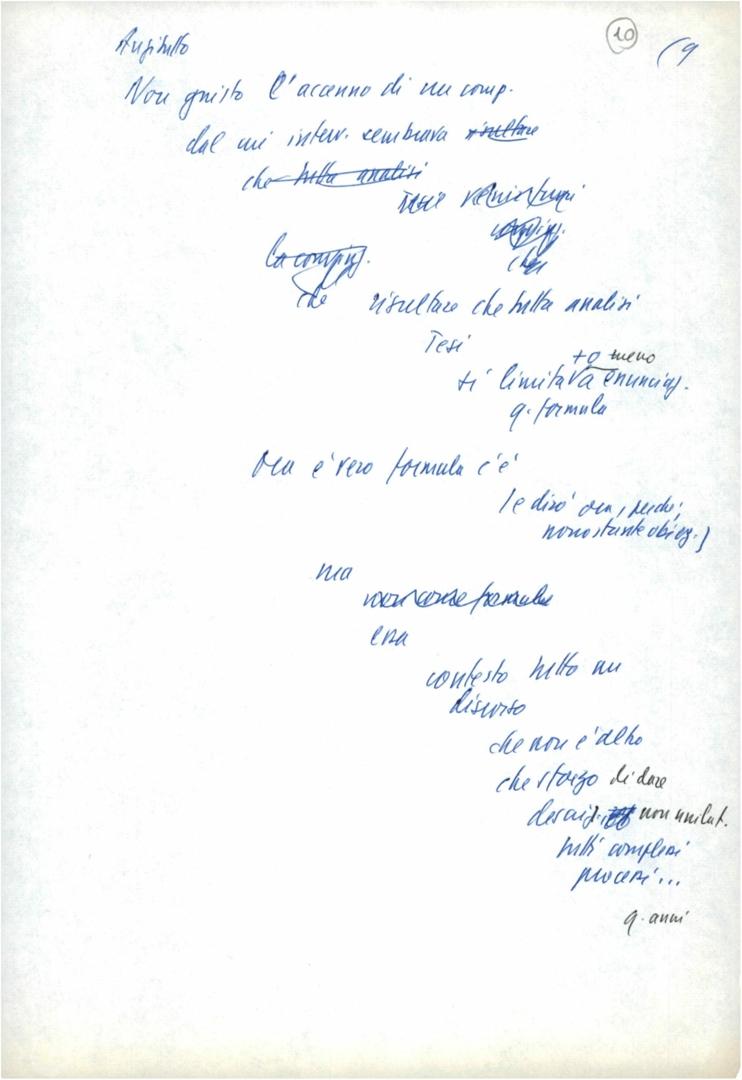 10 (9
Anzitutto
Non giusto l'accenno di un comp.
dal cui interv. sembrava risultare
che tutta analisi
Tesi
che
che risultare che tutta analisi
Tesi
+ o meno
si limitava enunciaz.
q. formula
Ora è vero formula c'è
(e dirò ora, perché,
nonostante obiez.)
ma
era
contesto tutto un
discorso
che non è altro
che sforzo di dare
descriz. non unilat.
tutti complessi
processi...
q. anni